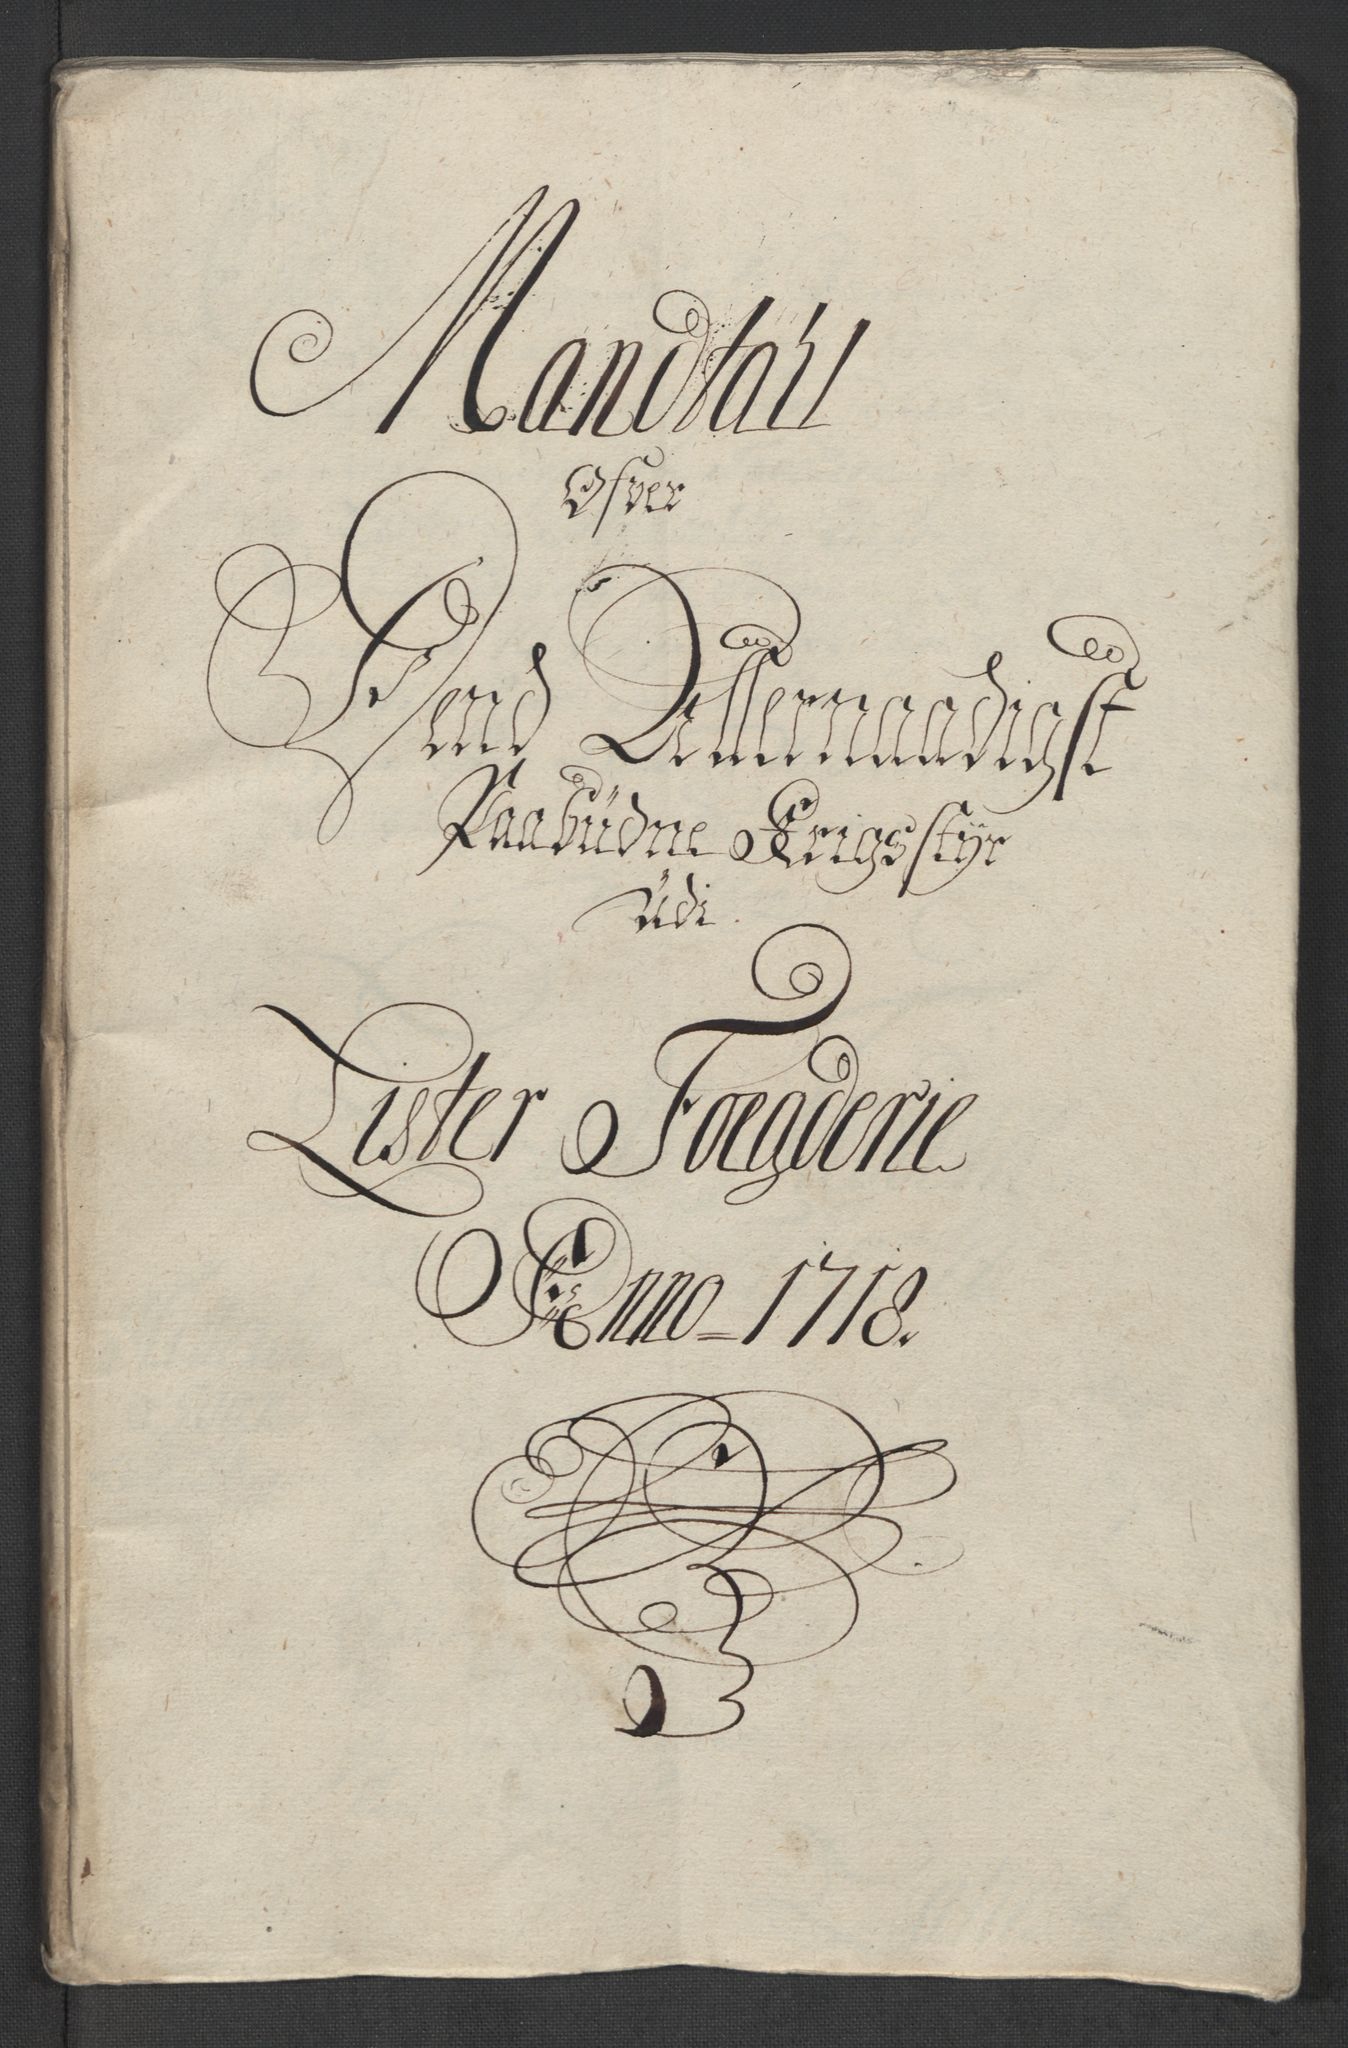 Mandtall
Ofver
Dend Allernaadigst
Paabüdne Krigsstÿr
Üdi
Lister Foegderie
Anno = 1718.